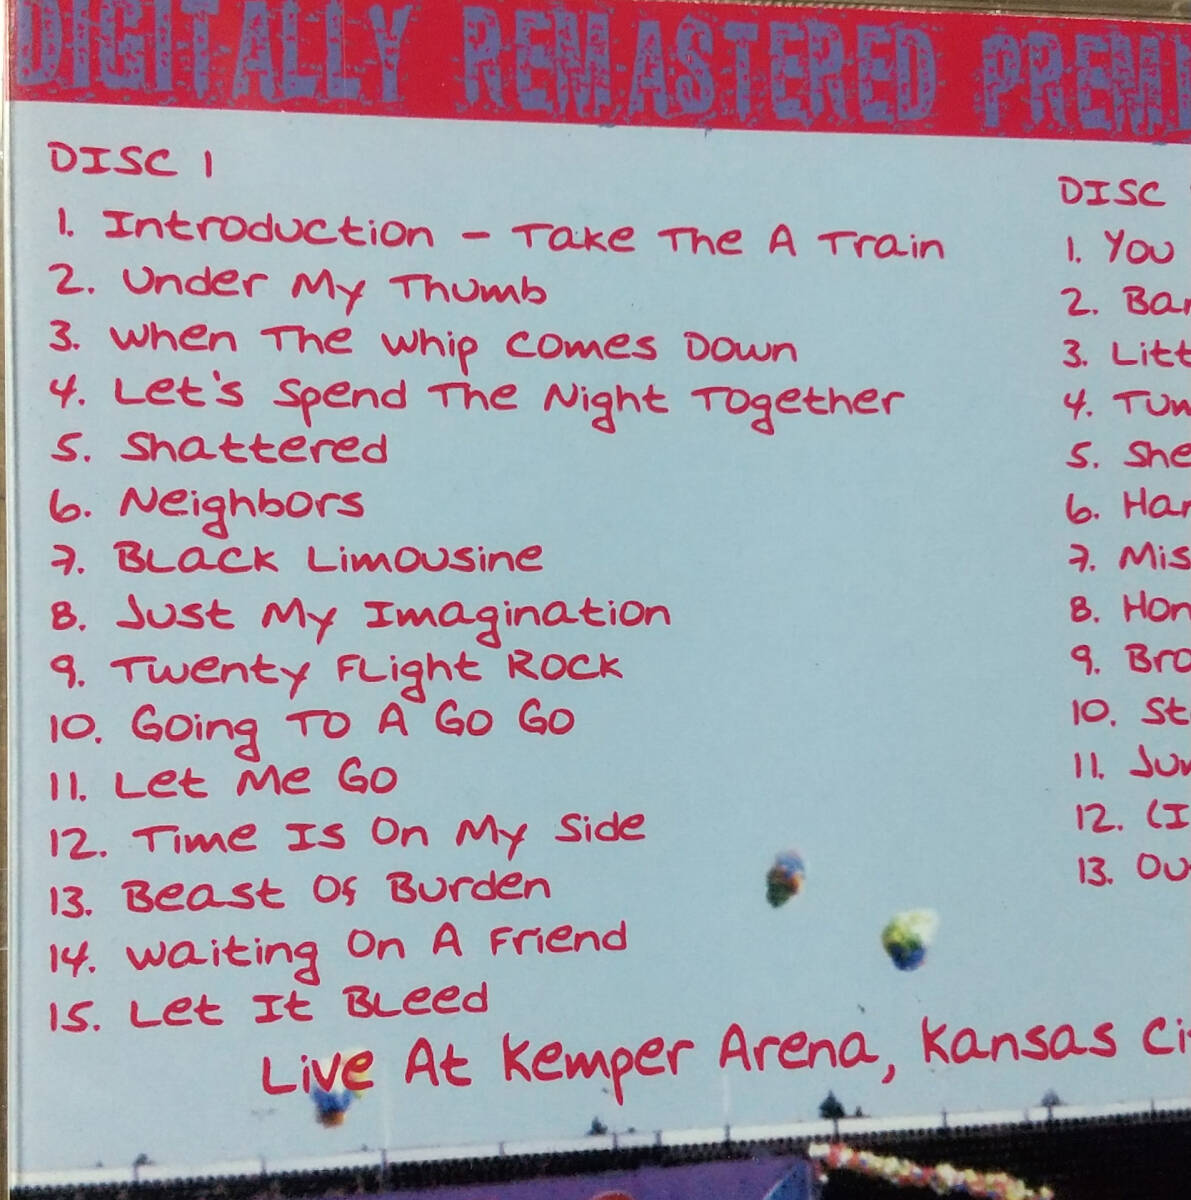 DIGITALLY REMASTERED
DISC 1
1. Introduction - Take The A Train
2. Under My Thumb
3. When The Whip Comes Down
4. Let's Spend The Night Together
5. Shattered
6. Neighbors
7. Black Limousine
8. Just My Imagination
9. Twenty Flight Rock
10. Going To A Go Go
11. Let Me Go
12. Time Is On My Side
13. Beast Of Burden
14. Waiting On A Friend
15. Let It Bleed
DISC
1. You
2.
3.
4.
5.
6.
7.
8.
9.
10.
11.
12.
13.
Live At Kemper Arena, Kansas